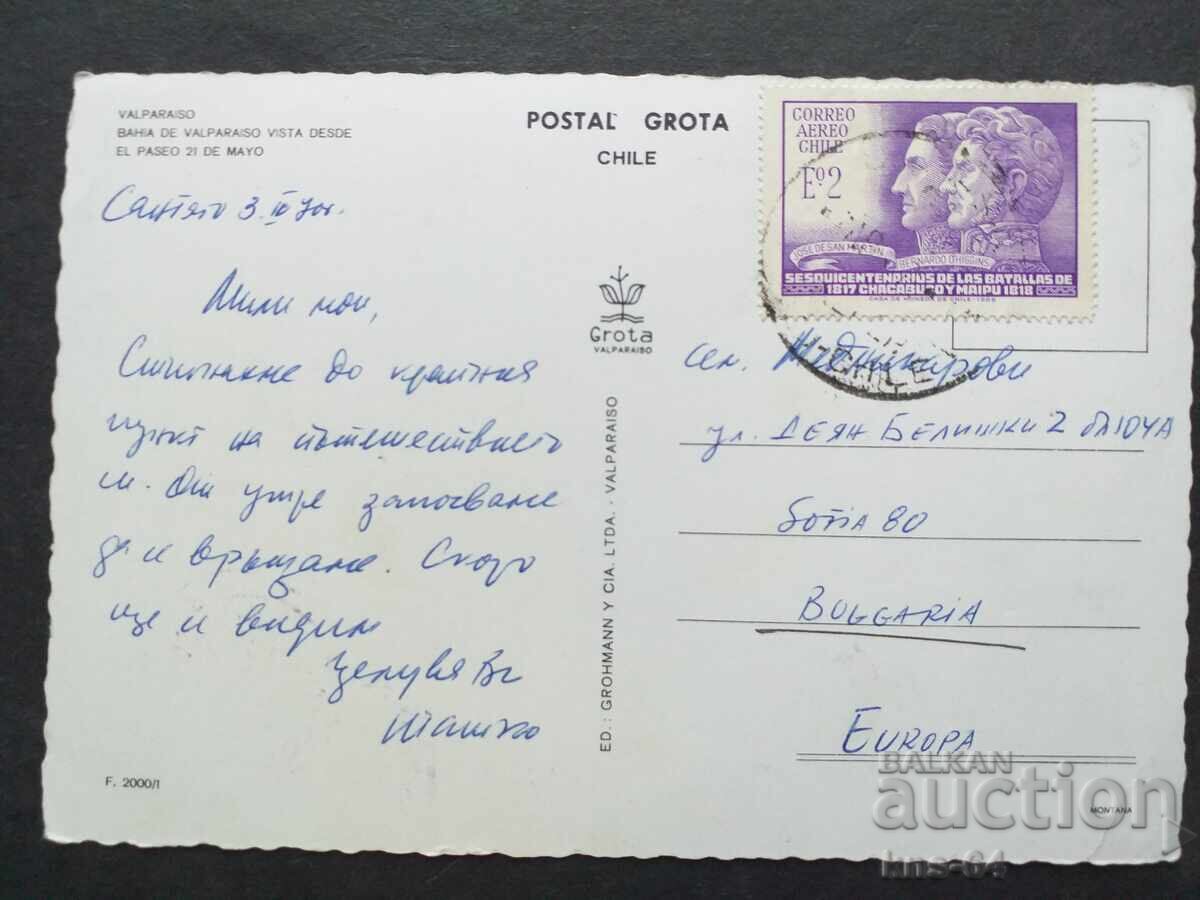 VALPARAISO
BAHIA DE VALPARAISO VISTA DESDE
EL PASEO 21 DE MAYO
POSTAL GROTA
CHILE
CORREO
AEREO
CHILE
Eº.2
JOSE DE SAN MARTIN
BERNARDO O'HIGGINS
SESQUICENTENARIOS DE LAS BATALLAS DE
1817 CHACABUCO Y MAIPU 1818
CASA DE MONEDA DE CHILE-1968
CHILE
Сантяго 3.
Мили мои,
Стигнахме до крайния
пункт на пътешествието
си. От утре започваме
да се връщаме. Скоро
ще се видим
Целувам Ви
Ташко
F. 2000/1
Grota
VALPARAISO
ED.: GROHMANN Y CIA. LTDA. - VALPARAISO
сем.
ул. ДЕЯН БЕЛИШКИ 2 бл 10ЧА
Sofia 80
BULGARIA
EUROPA
MONTANA
BALKAN
auction
kns-64